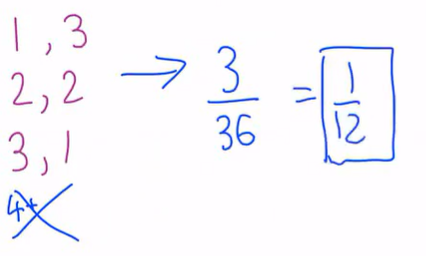 1, 3
2, 2
3, 1
4+
→ 3/36 = 1/12